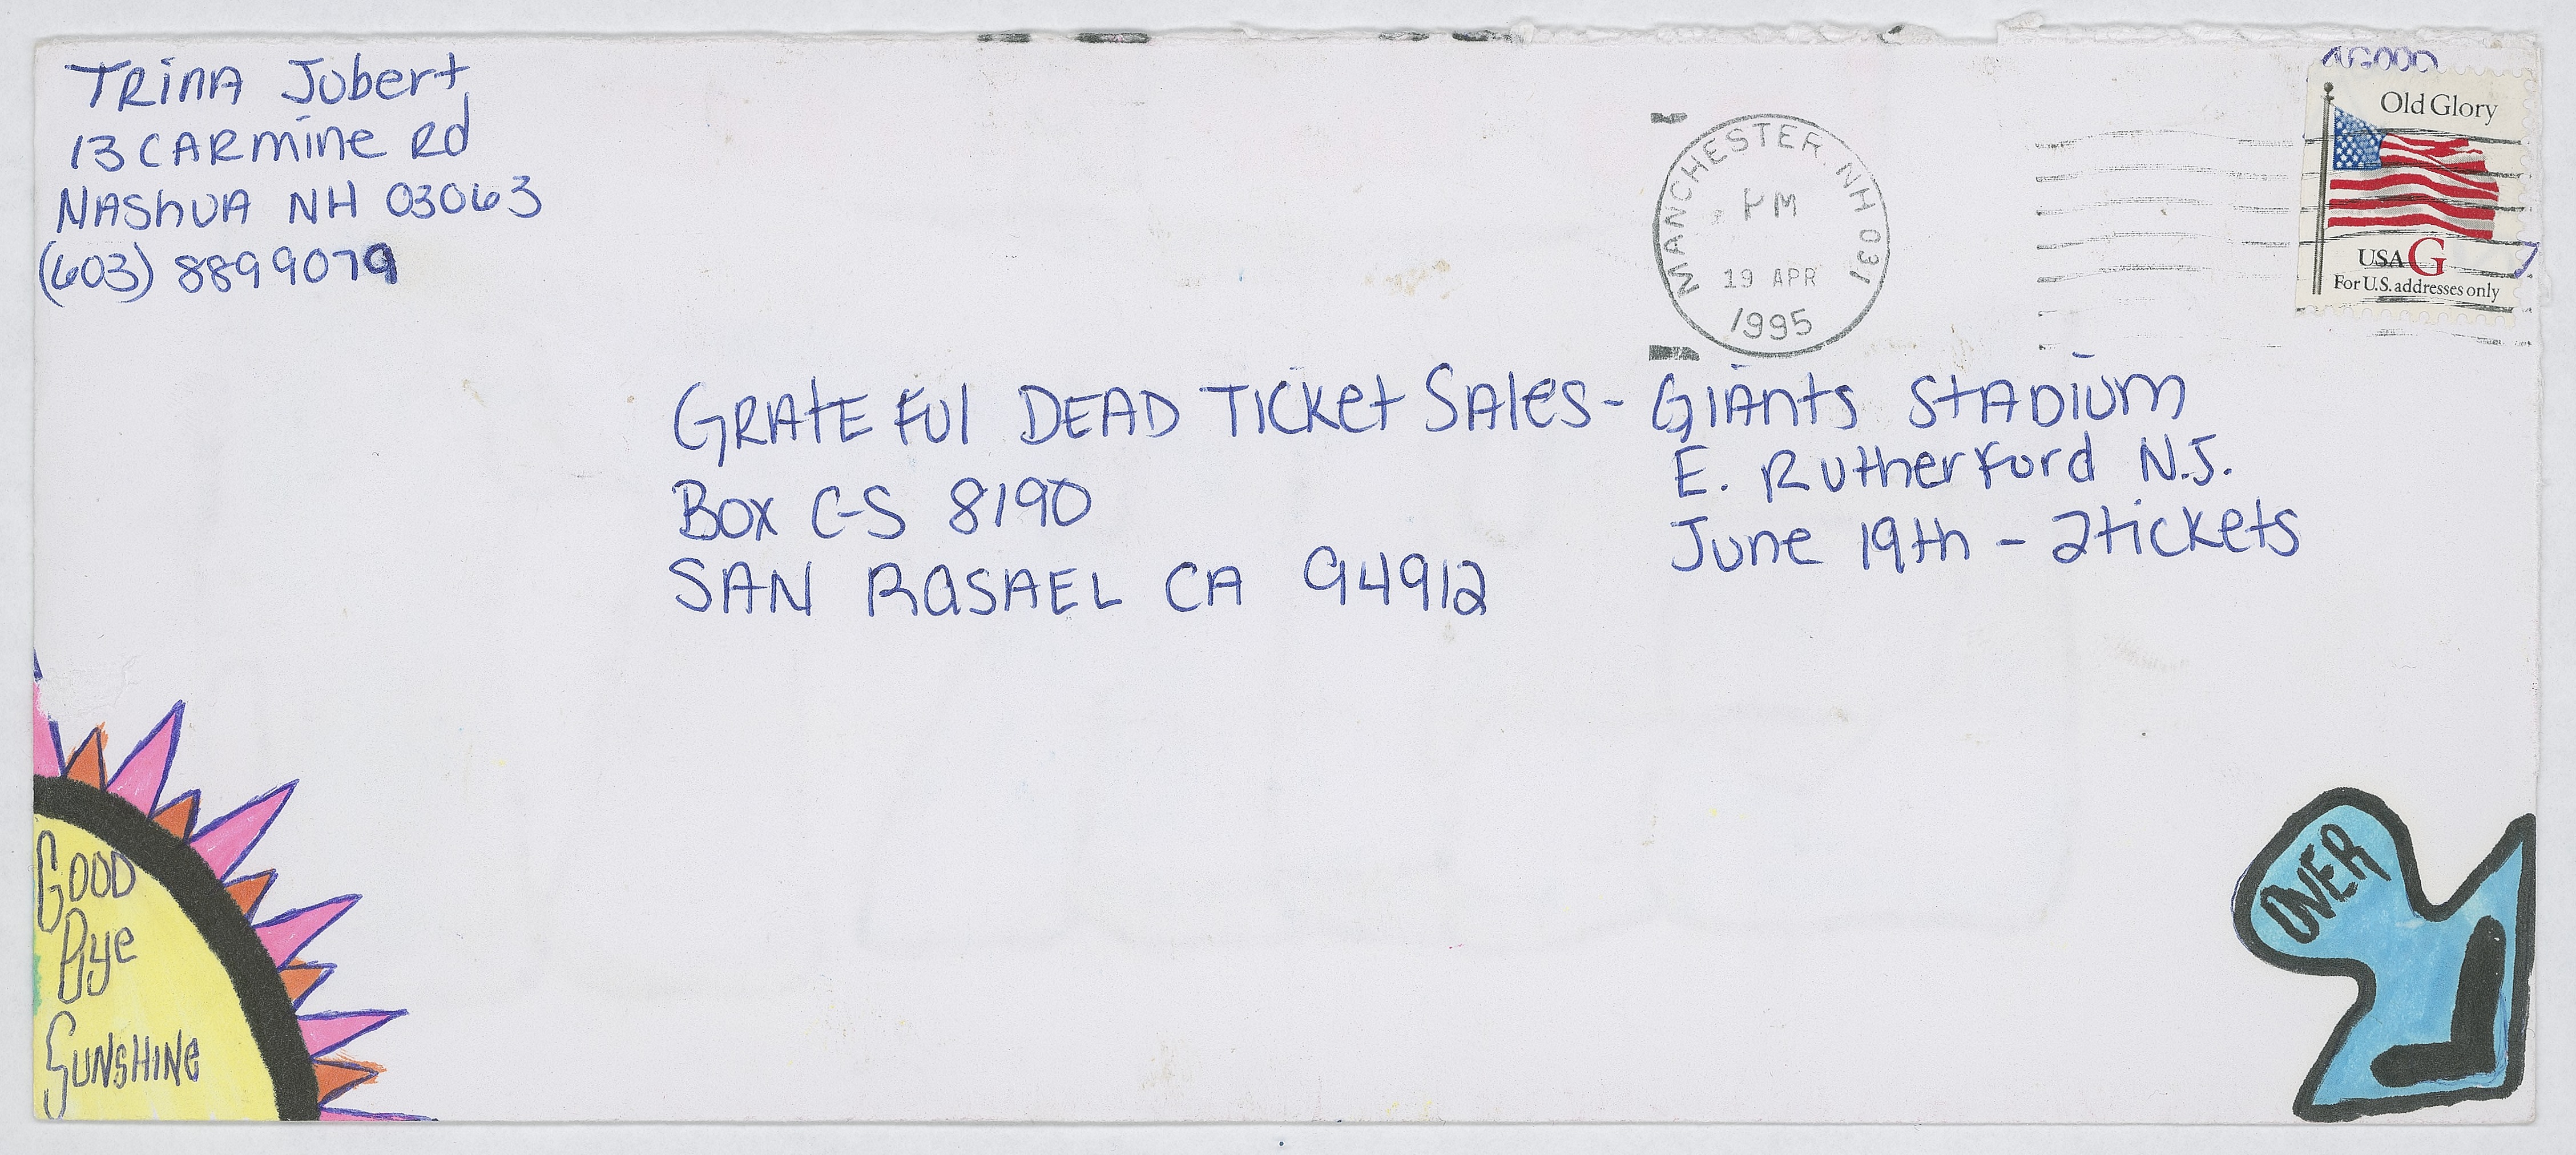 TRinA Jubert
13 CARmine Rd
NAShUA NH 03063
(603) 8899079
MANCHESTER, NH 031
PM
19 APR
1995
Old Glory
USA G
For U.S. addresses only
GRAtEFul DEAD Ticket SAles - GiAnts StADium
E. Rutherford N.J.
Box C-S 8190
June 19th - 2tickets
SAN RaSAEL CA 94912
GOOD
Bye
SUNSHINE
OVER